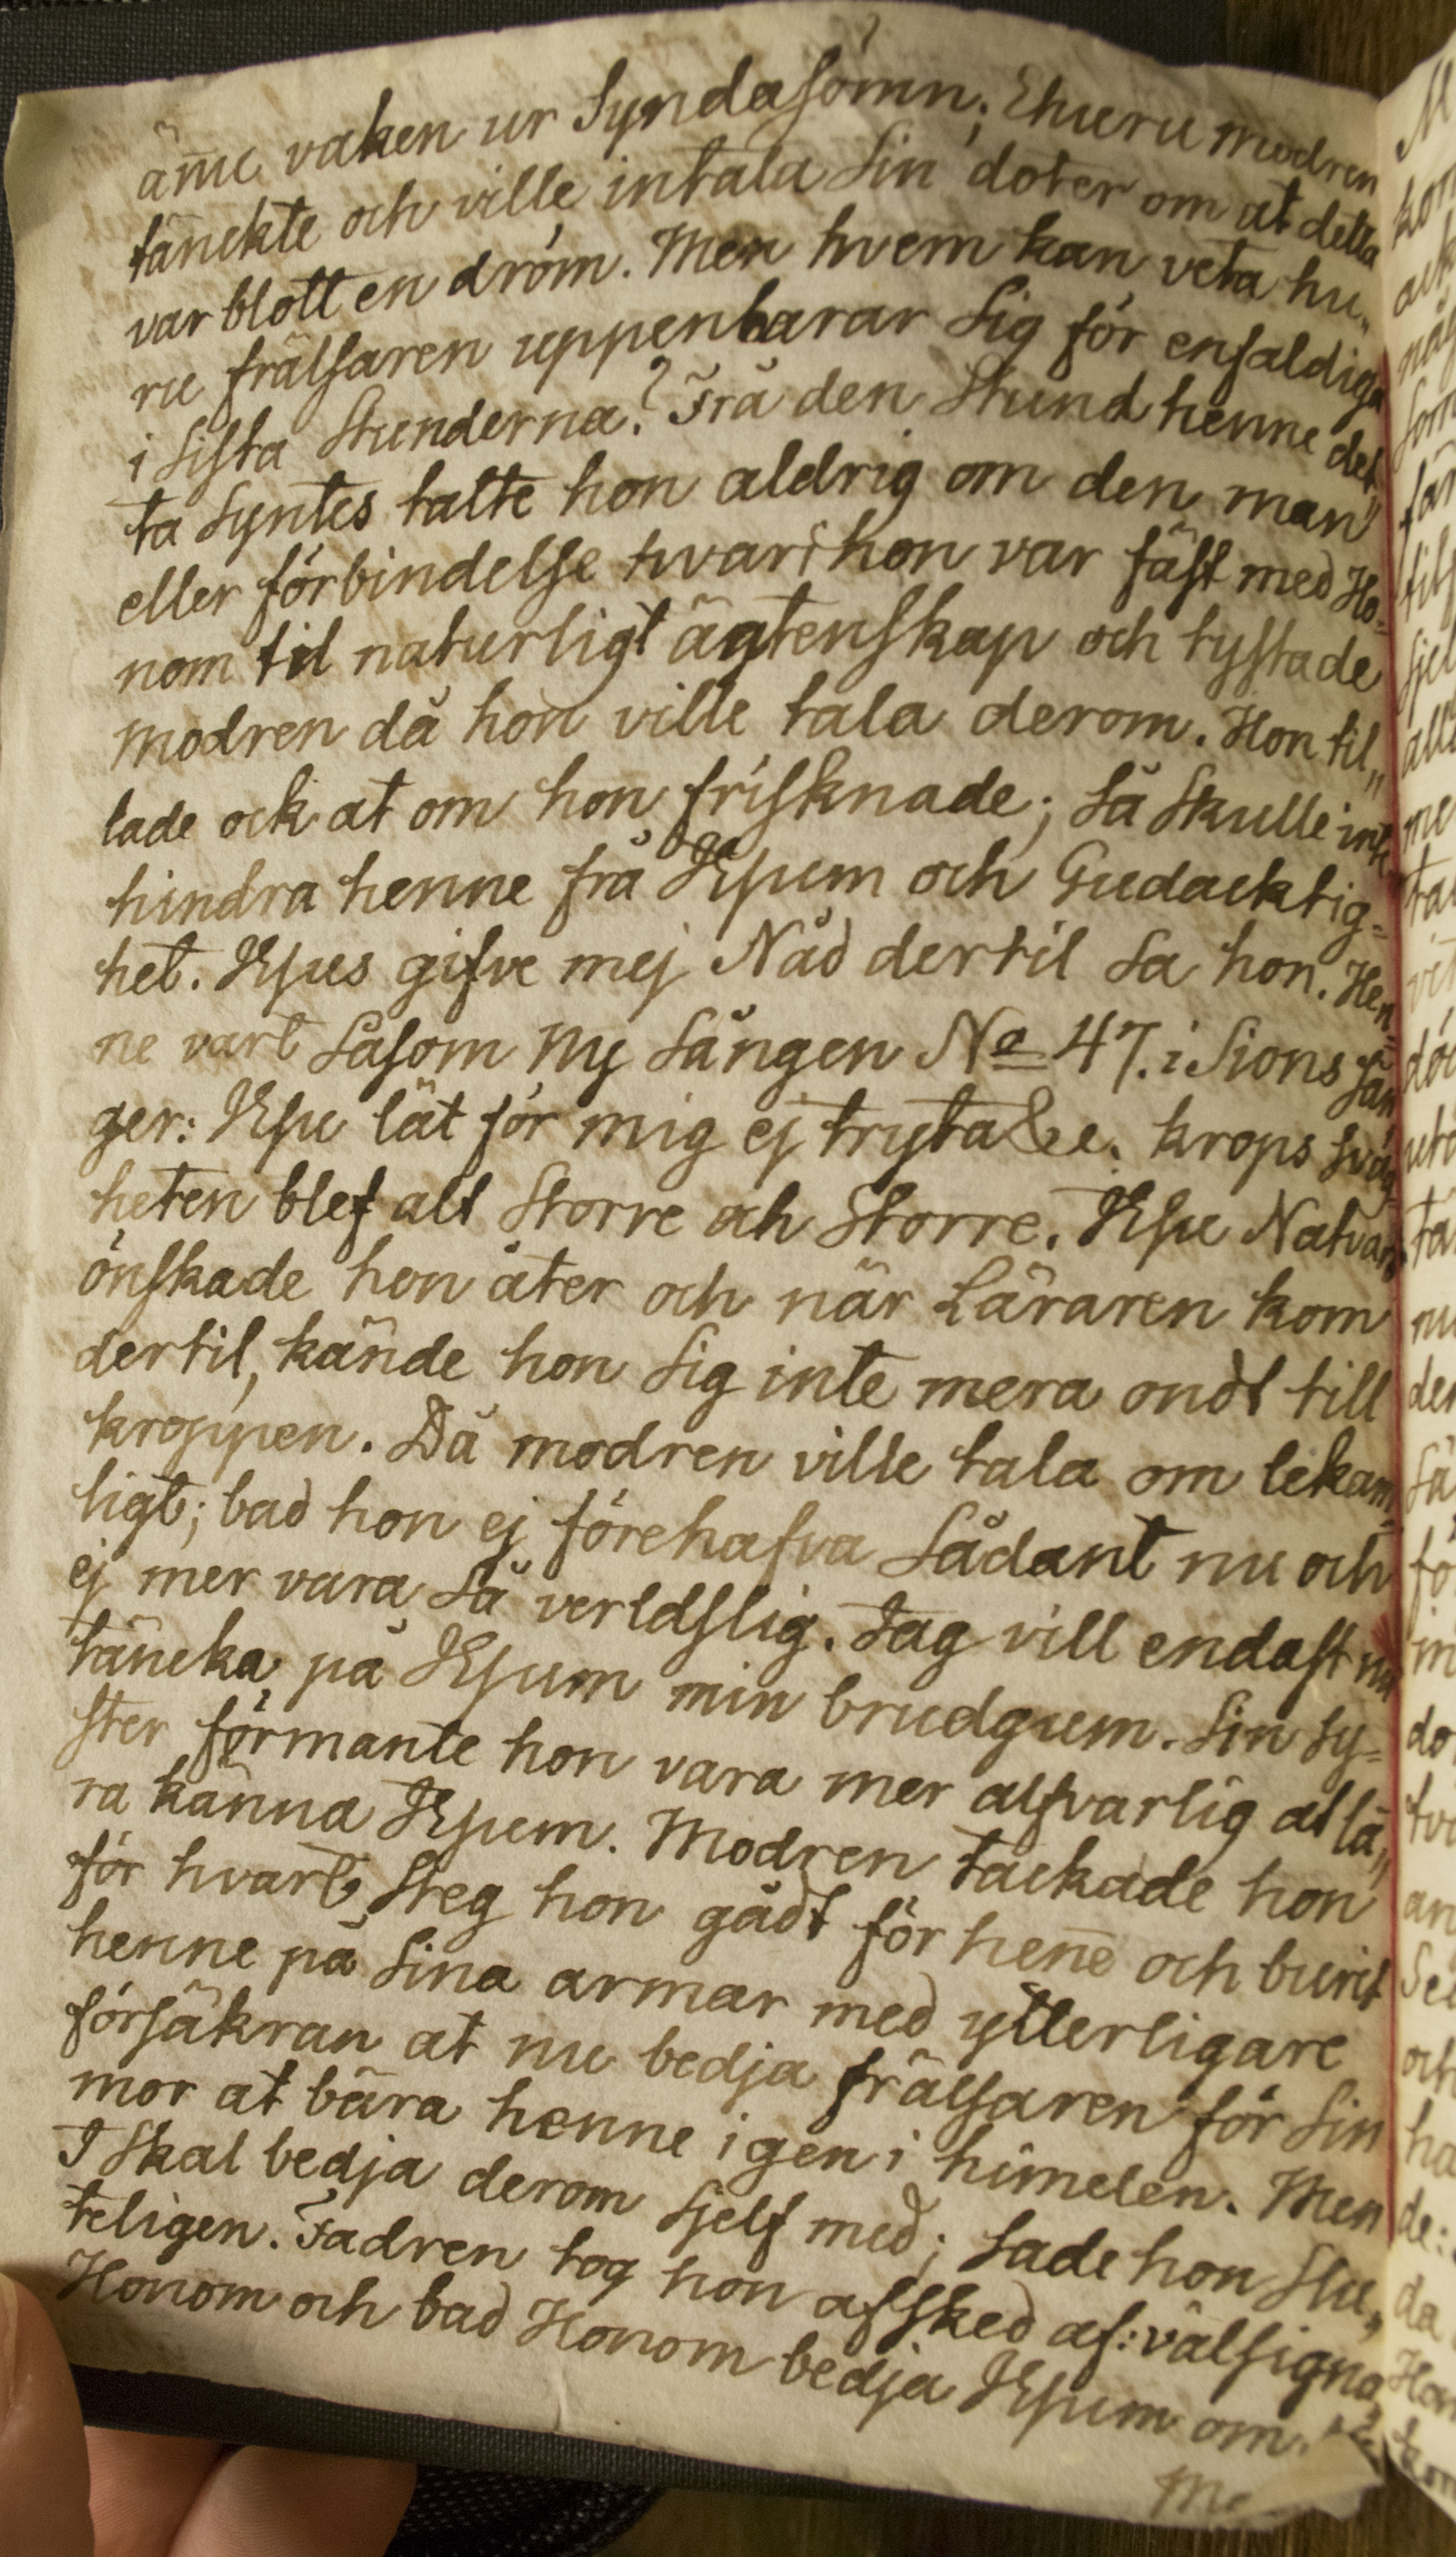 änu vaken ur Syndasömn; Ehuru modren
tänckte och ville intala Sin doter om at detta
var blott en dröm. Men hvem kan veta hu„
ru frälsaren uppenbarar Sig för enfaldiga
i Sista Stunderna? Frå den Stund henne det„
ta Syntes talte hon aldrig om den man
eller förbindelse hvari hon var fäst med Ho-
nom til naturligt ägtenskap och tystade
modren då hon ville tala derom. Hon til„
lade ock at om hon frisknade; Så Skulle inte
hindra henne frå JEsum och Gudacktig-
het. JEsus gifve mej Nåd dertil Sa hon. Hen-
ne vart Såsom Ny Sången No 47. i Sions Sån
ger: JEsu låt för mig ej tryta &c. krops Svag
heten blef alt Större och Större. JEsu Natvard
önskade hon åter och när Läraren kom
dertil, kände hon Sig inte mera ondt till
kroppen. Då modren ville tala om lekam-
ligt; bad hon ej förehafva Sådant nu och
ej mer vara Så verldslig. Jag vill endast nu
täncka på JEsum min brudgum. Sin Sy-
ster förmante hon vara mer alfvarlig at lä„
ra känna JEsum. Modren tackade hon
för hvart Steg hon gådt för hene och burit
henne på Sina armar med ytterligare
försäkran at nu bedja frälsaren för Sin
mor at bära henne igen i himelen. Men
I Skal bedja derom Sjelf med; Sade hon Slu„
teligen. Fadren tog hon afsked af: välsigna„
Honom och bad Honom bedja JEsum om